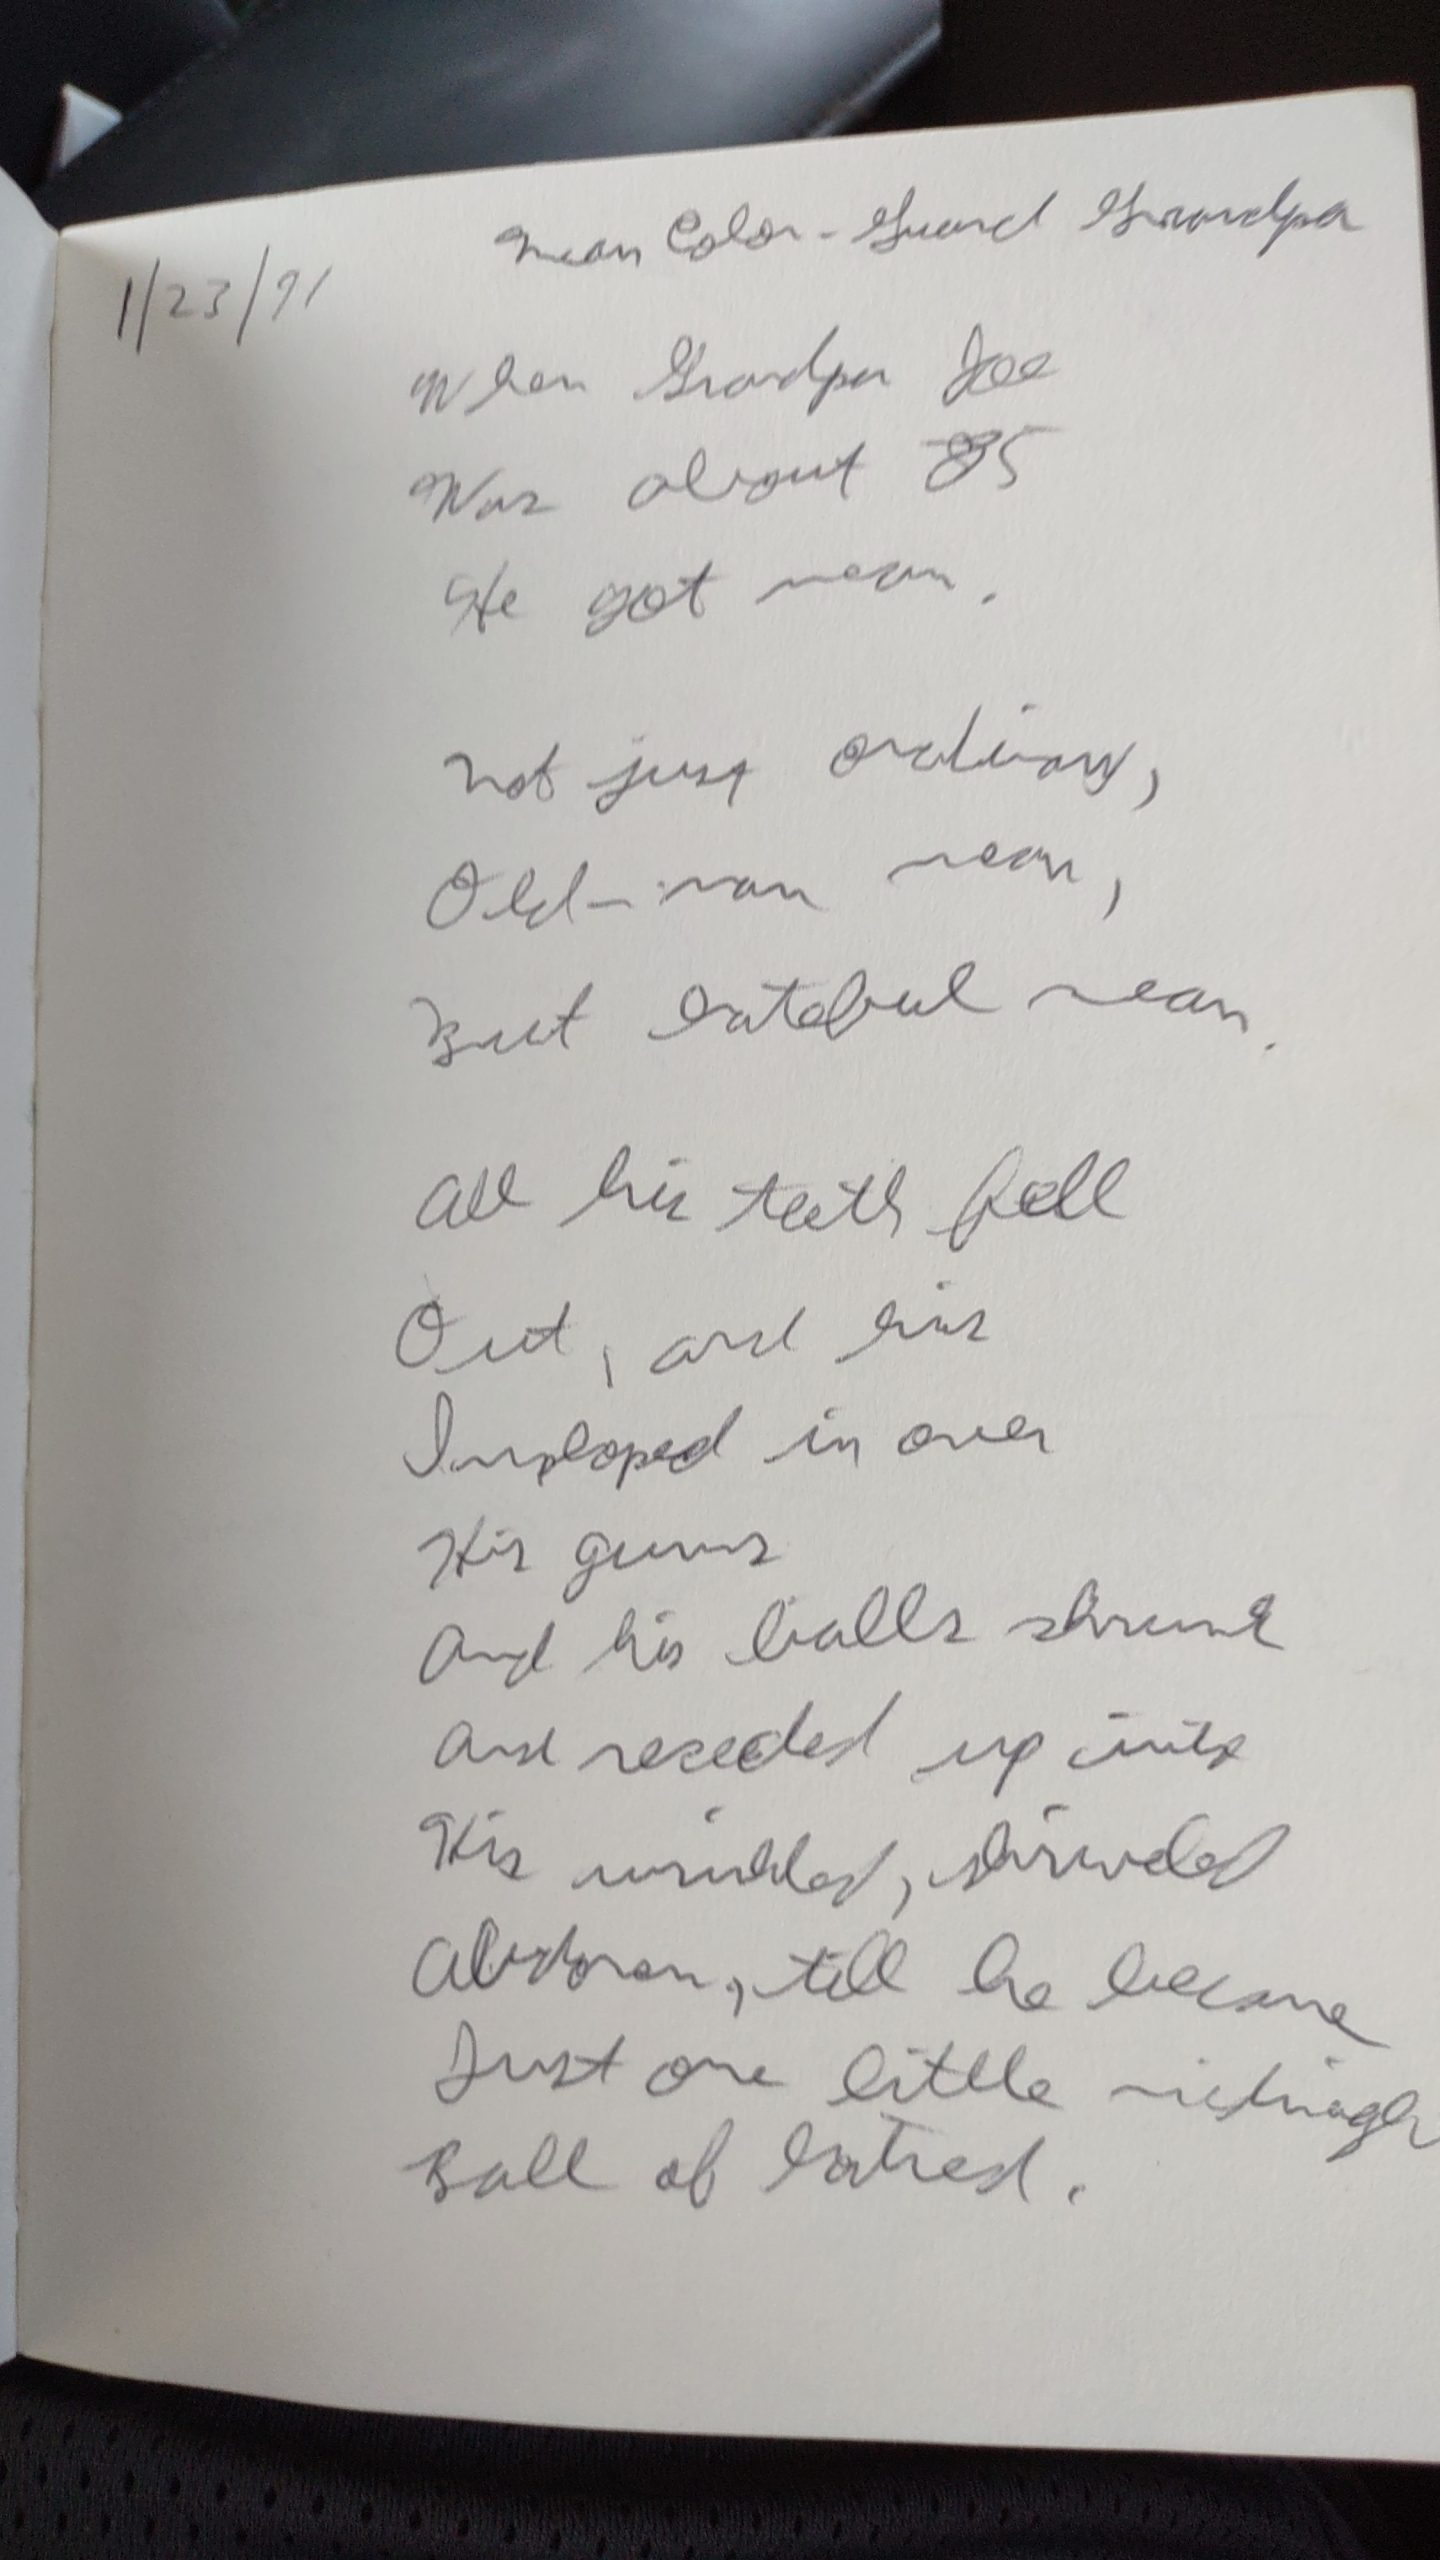 Mean Color-Guard Grandpa
1/23/91
When Grandpa Joe
Was about 85
He got mean.
Not just ordinary,
Old-man mean,
But hateful mean.
All his teeth fell
Out, and his
in over
His gums
And his balls shrunk
And reseeded up into
His wrinkled, shriveled
Abdomen, till he became
Just one little midnight
Ball of hatred.